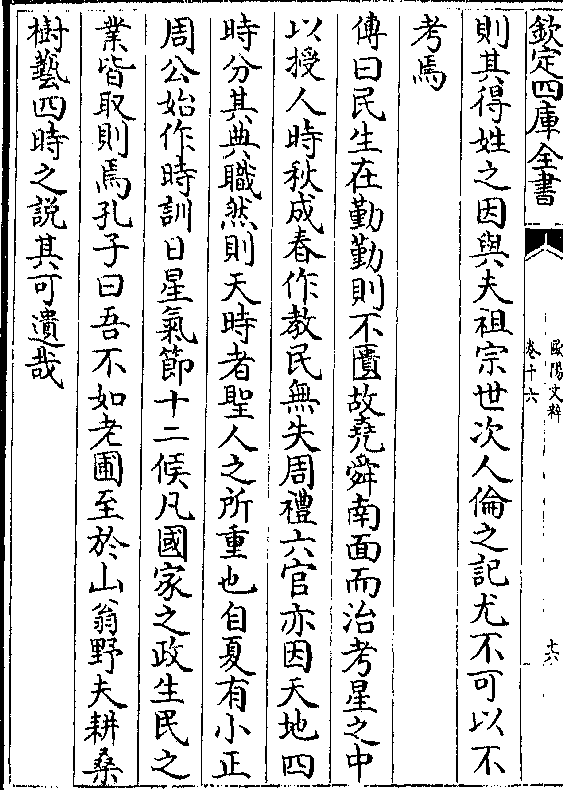 欽定四庫全書
歐陽文粹
卷十六
十六
則其得姓之因與夫祖宗世次人倫之記尤不可以不
考焉
傳曰民生在勤勤則不匱故堯舜南面而治考星之中
以授人時秋成春作教民無失周禮六官亦因天地四
時分其典職然則天時者聖人之所重也自夏有小正
周公始作時訓日星氣節七十二候凡國家之政生民之
業皆取則焉孔子曰吾不如老圃至於山翁野夫耕桑
樹藝四時之說其可遺哉